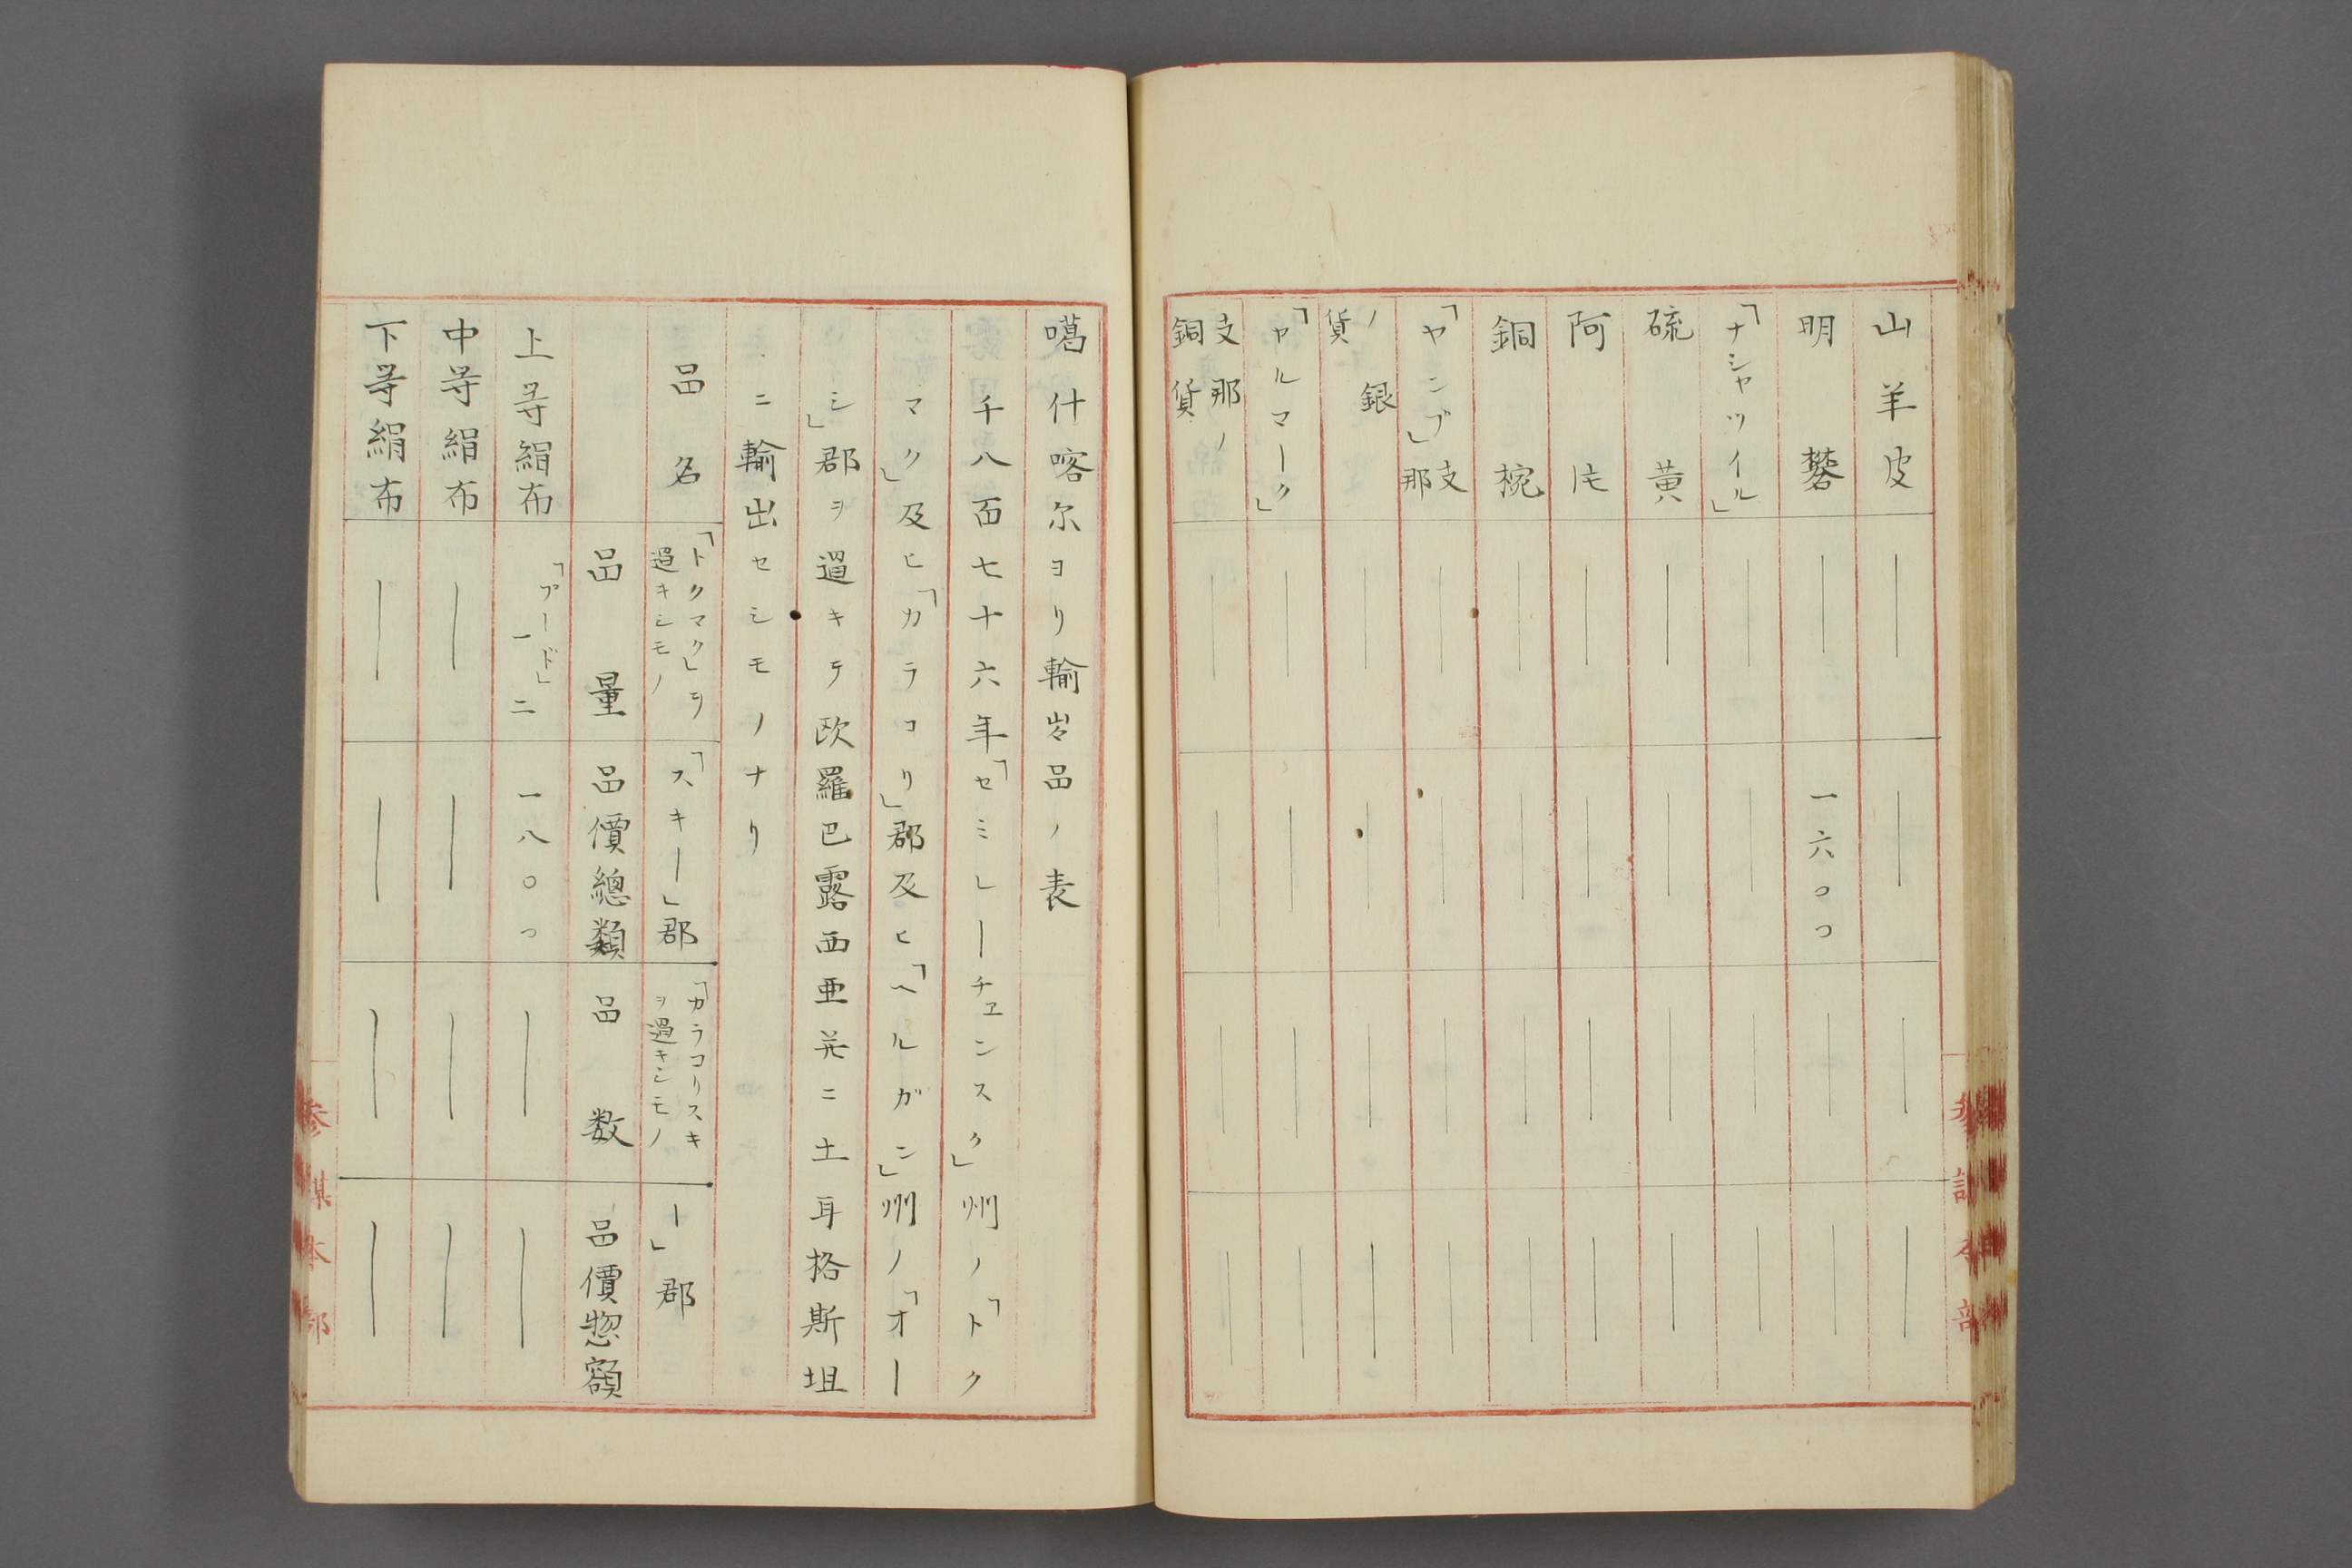 山羊皮 ― ― ― ―
明礬 ― 一六〇〇 ― ―
「ナシヤツイル」 ― ― ― ―
硫黄 ― ― ― ―
阿片 ― ― ― ―
銅椀 ― ― ― ―
「ヤンブ」支那 ― ― ― ―
ノ銀貨 ― ― ― ―
「ヤルマーク」 ― ― ―
支那ノ銅貨 ― ― ― ―
噶什喀尓ヨリ輸出品ノ表
千八百七十六年「セミレーチェンスク」州ノ「トク
マク」及ヒ「カラコリ」郡及ヒ「ヘルガン」州ノ「オー
シ」郡ヲ過キテ欧羅巴露西亜并ニ土耳格斯坦
ニ輸出セシモノナリ
品名 「トクマク」ヲ過キシモノ 「スキー」郡 「カラコリスキヲ過キシモノ ー」郡
品量 品價總額 品数 品價惣額
上等絹布 「プード」一二 一八〇〇 ― ―
中等絹布 ― ― ― ―
下等絹布 ― ― ― ―
参謀本部